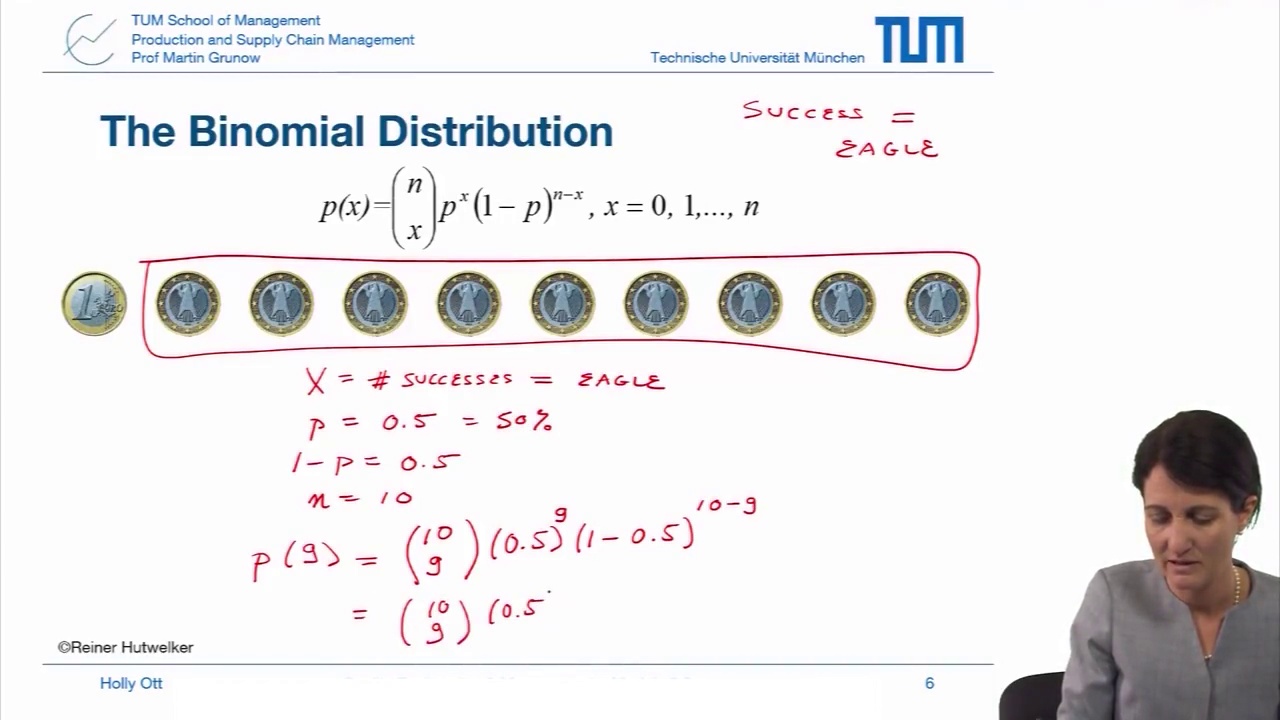 TUM School of Management
Production and Supply Chain Management
Prof Martin Grunow
Technische Universität München
TUM
The Binomial Distribution
SUCCESS =
EAGLE
p(x)=(n x) p^x (1 − p)^{n−x}, x = 0, 1,..., n
X = # SUCCESSES = EAGLE
p = 0.5 = 50%
1-p = 0.5
n = 10
p(9) = (10 9) (0.5)^9 (1 - 0.5)^{10-9}
= (10 9) (0.5
©Reiner Hutwelker
Holly Ott
6